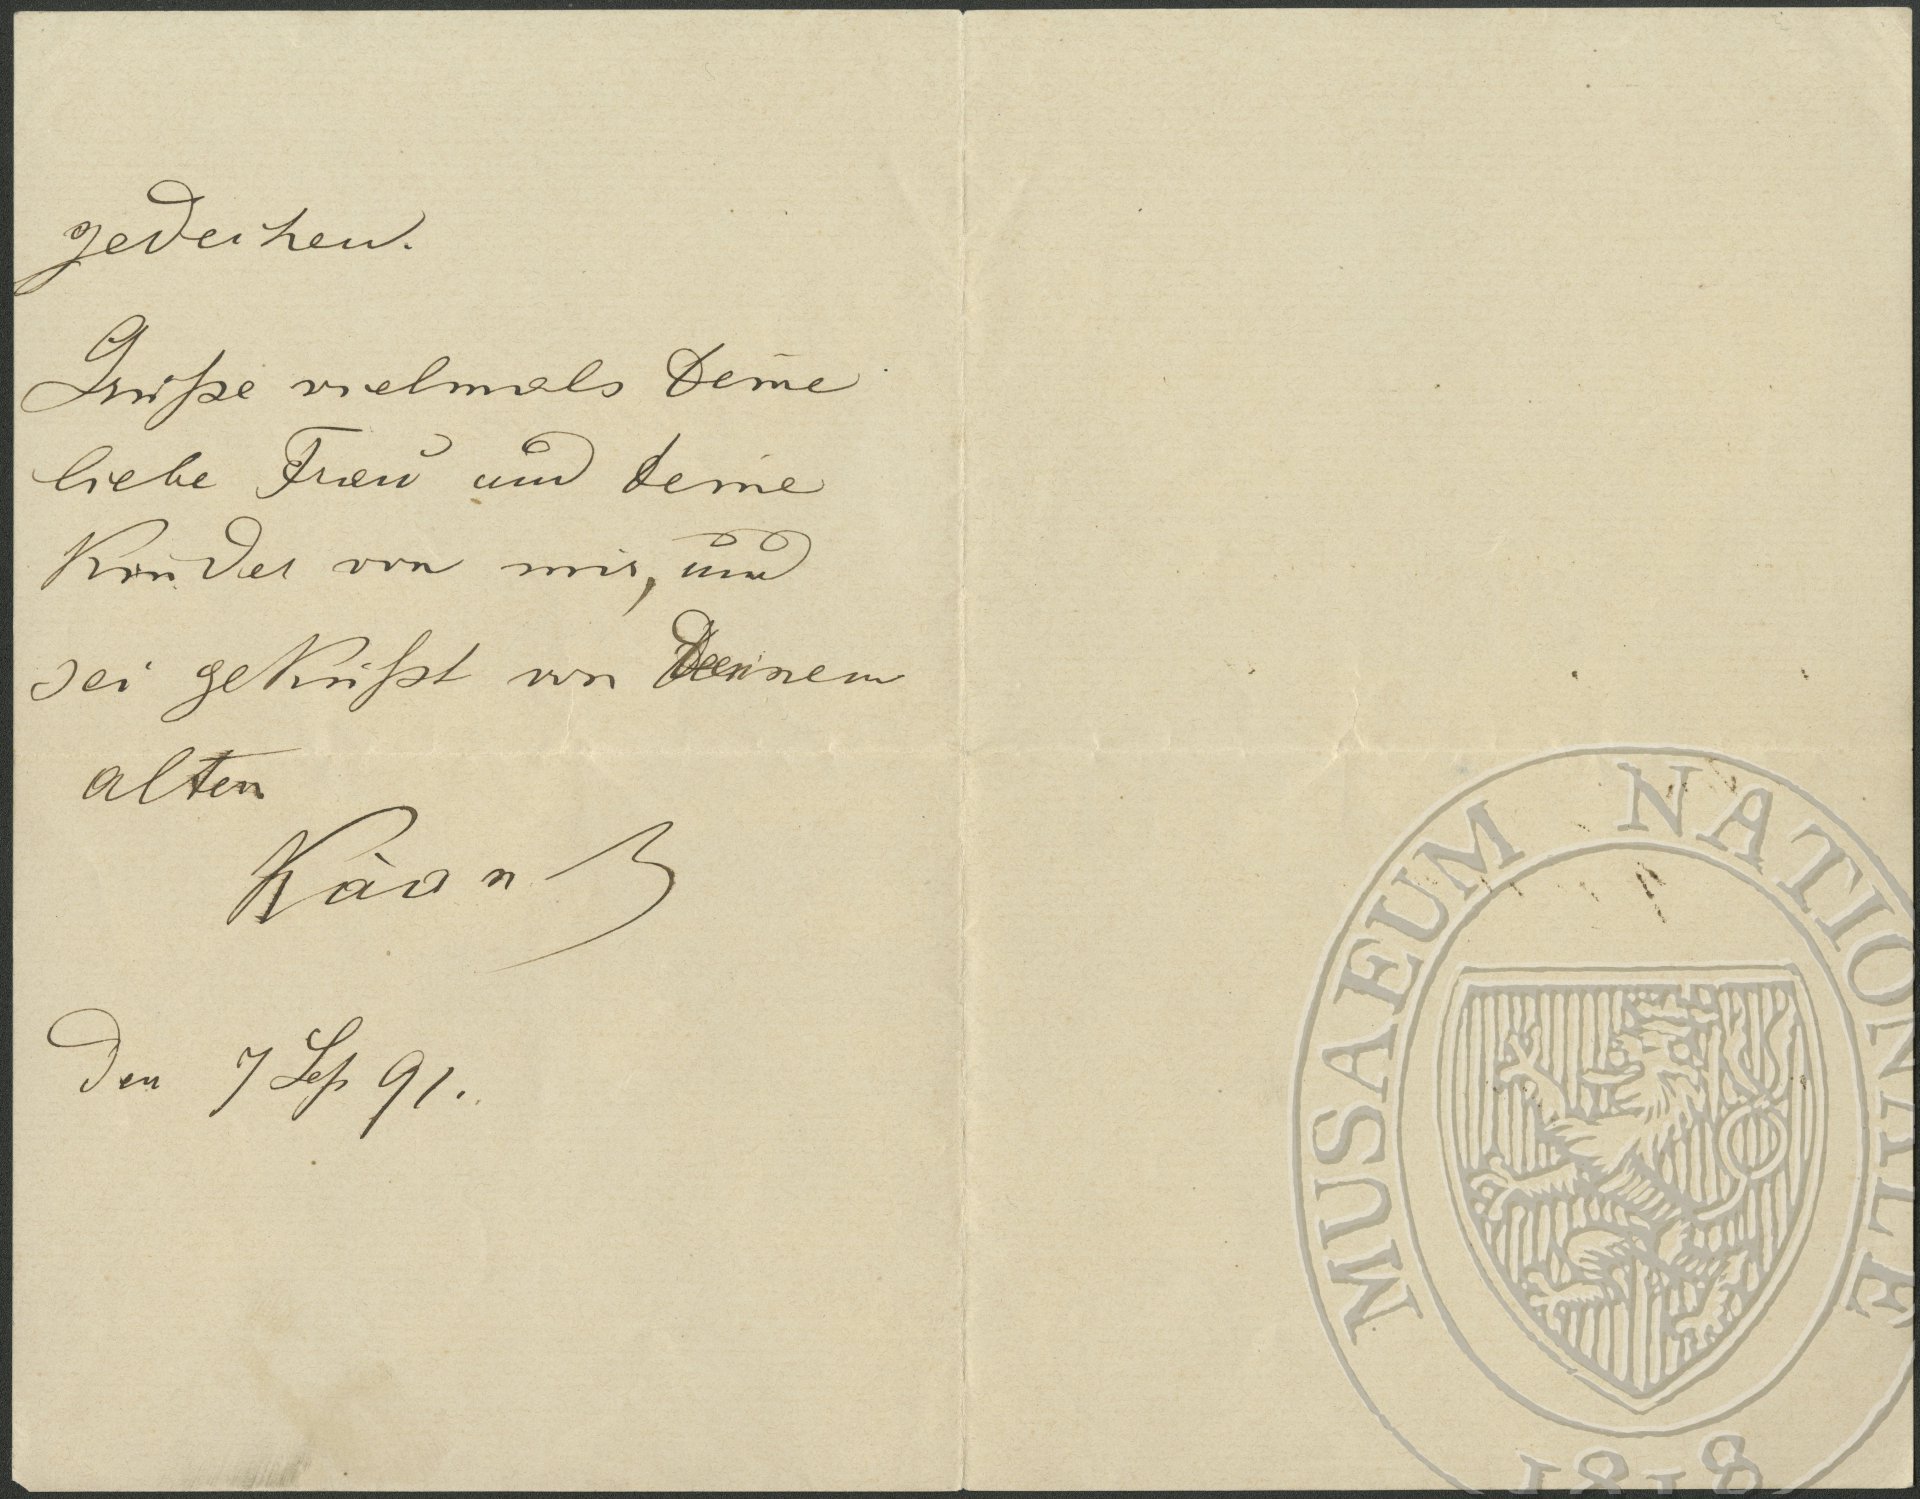 gedeihen.
Grüße vielmals Deine
liebe Frau und Deine
Kinder von mir, und
sei geküßt von Deinem
alten
Kàan
Den 7 Sep 91.
MUSAEUM NATIONALE
1818